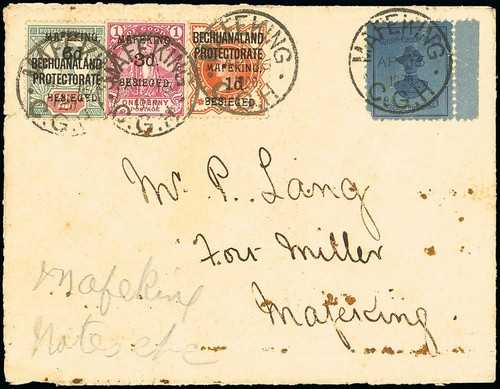 MAFEKING
6d
BECHUANALAND
PROTECTORATE
BESIEGED.
MAFEKING
3d
BESIEGED.
ONE PENNY
POSTAGE
BECHUANALAND
PROTECTORATE
MAFEKING,
1d
BESIEGED.
MAFEKING
C.G.H
MAFEKING
C.G.H
MAFEKING
C.G.H
MAFEKING
AP
C.G.H
Mr P. Lang
Fort Miller
Mafeking.
Mafeking
Notes etc